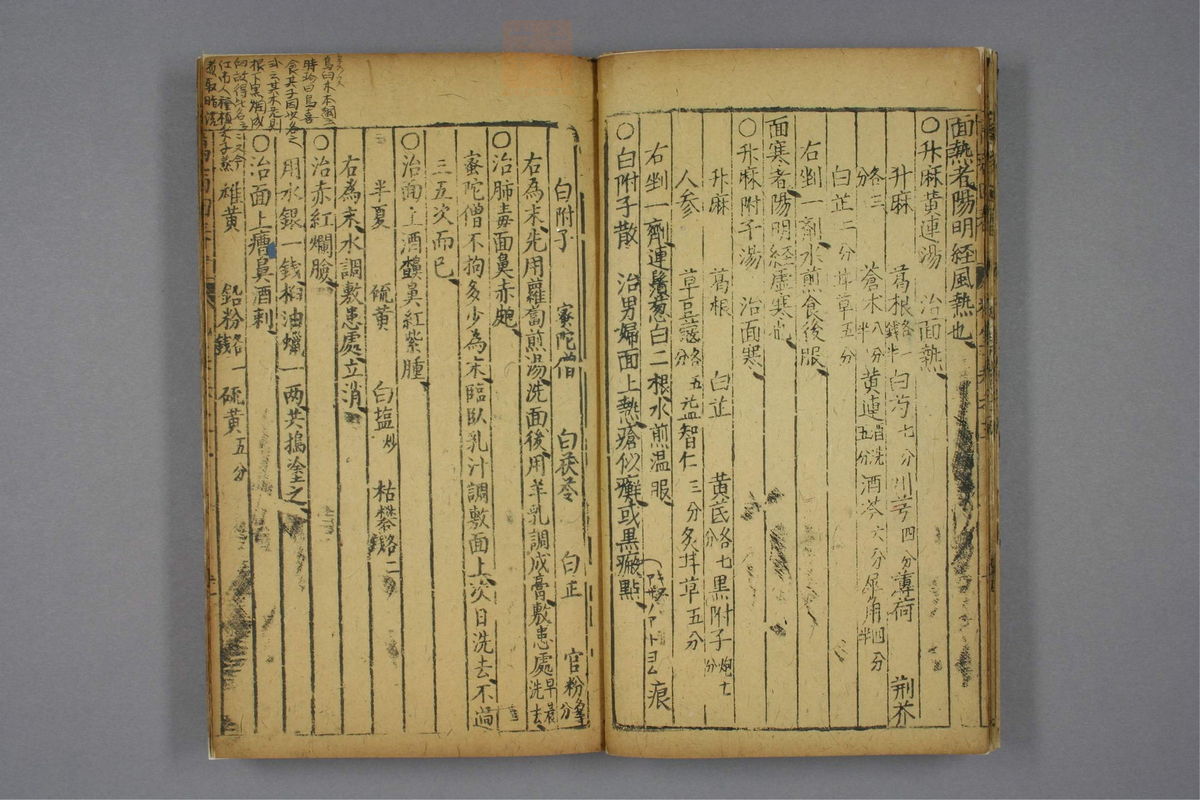 面熱者陽明経風熱也
○升麻黄連湯　治面熱
升麻　葛根各一錢半　白芍七分　川芎四分　薄荷　荆芥
各三分　蒼木八分半　黄連酒洗五分　酒芩六分　犀角四分半
白芷二分　甘草五分
右剉一劑水煎食後服
面寒者陽明経虚寒也
○升麻附子湯　治面寒
升麻　葛根　白芷　黄芪各七分　黒附子炮七分
人参　草豆蔲各五分　益智仁三分　炙甘草五分
右剉一劑連鬚葱白二根水煎温服
○白附子散　治男婦面上熱瘡似癬或黒瘢點痕
白附子　蜜陀僧　白茯苓　白芷　官粉各等分
右為末先用蘿蔔煎湯洗面後用羊乳調成膏敷患處早晨洗去
○治肺毒面鼻赤皰
蜜陀僧不拘多少為末臨臥乳汁調敷面上次日洗去不過
三五次而已
○治面上酒齄鼻紅紫腫
半夏　硫黄　白塩炒　枯礬各二錢
右為末水調敷患處立消
○治赤紅爛臉
用水銀一錢桕油蠟一两共搗塗之
○治面上癗鼻酒刺
雄黄　鉛粉各一錢　硫黄五分
烏臼木本綱二
時珍曰烏喜
食其子因以名之
或云其木老則
根下黒爛成